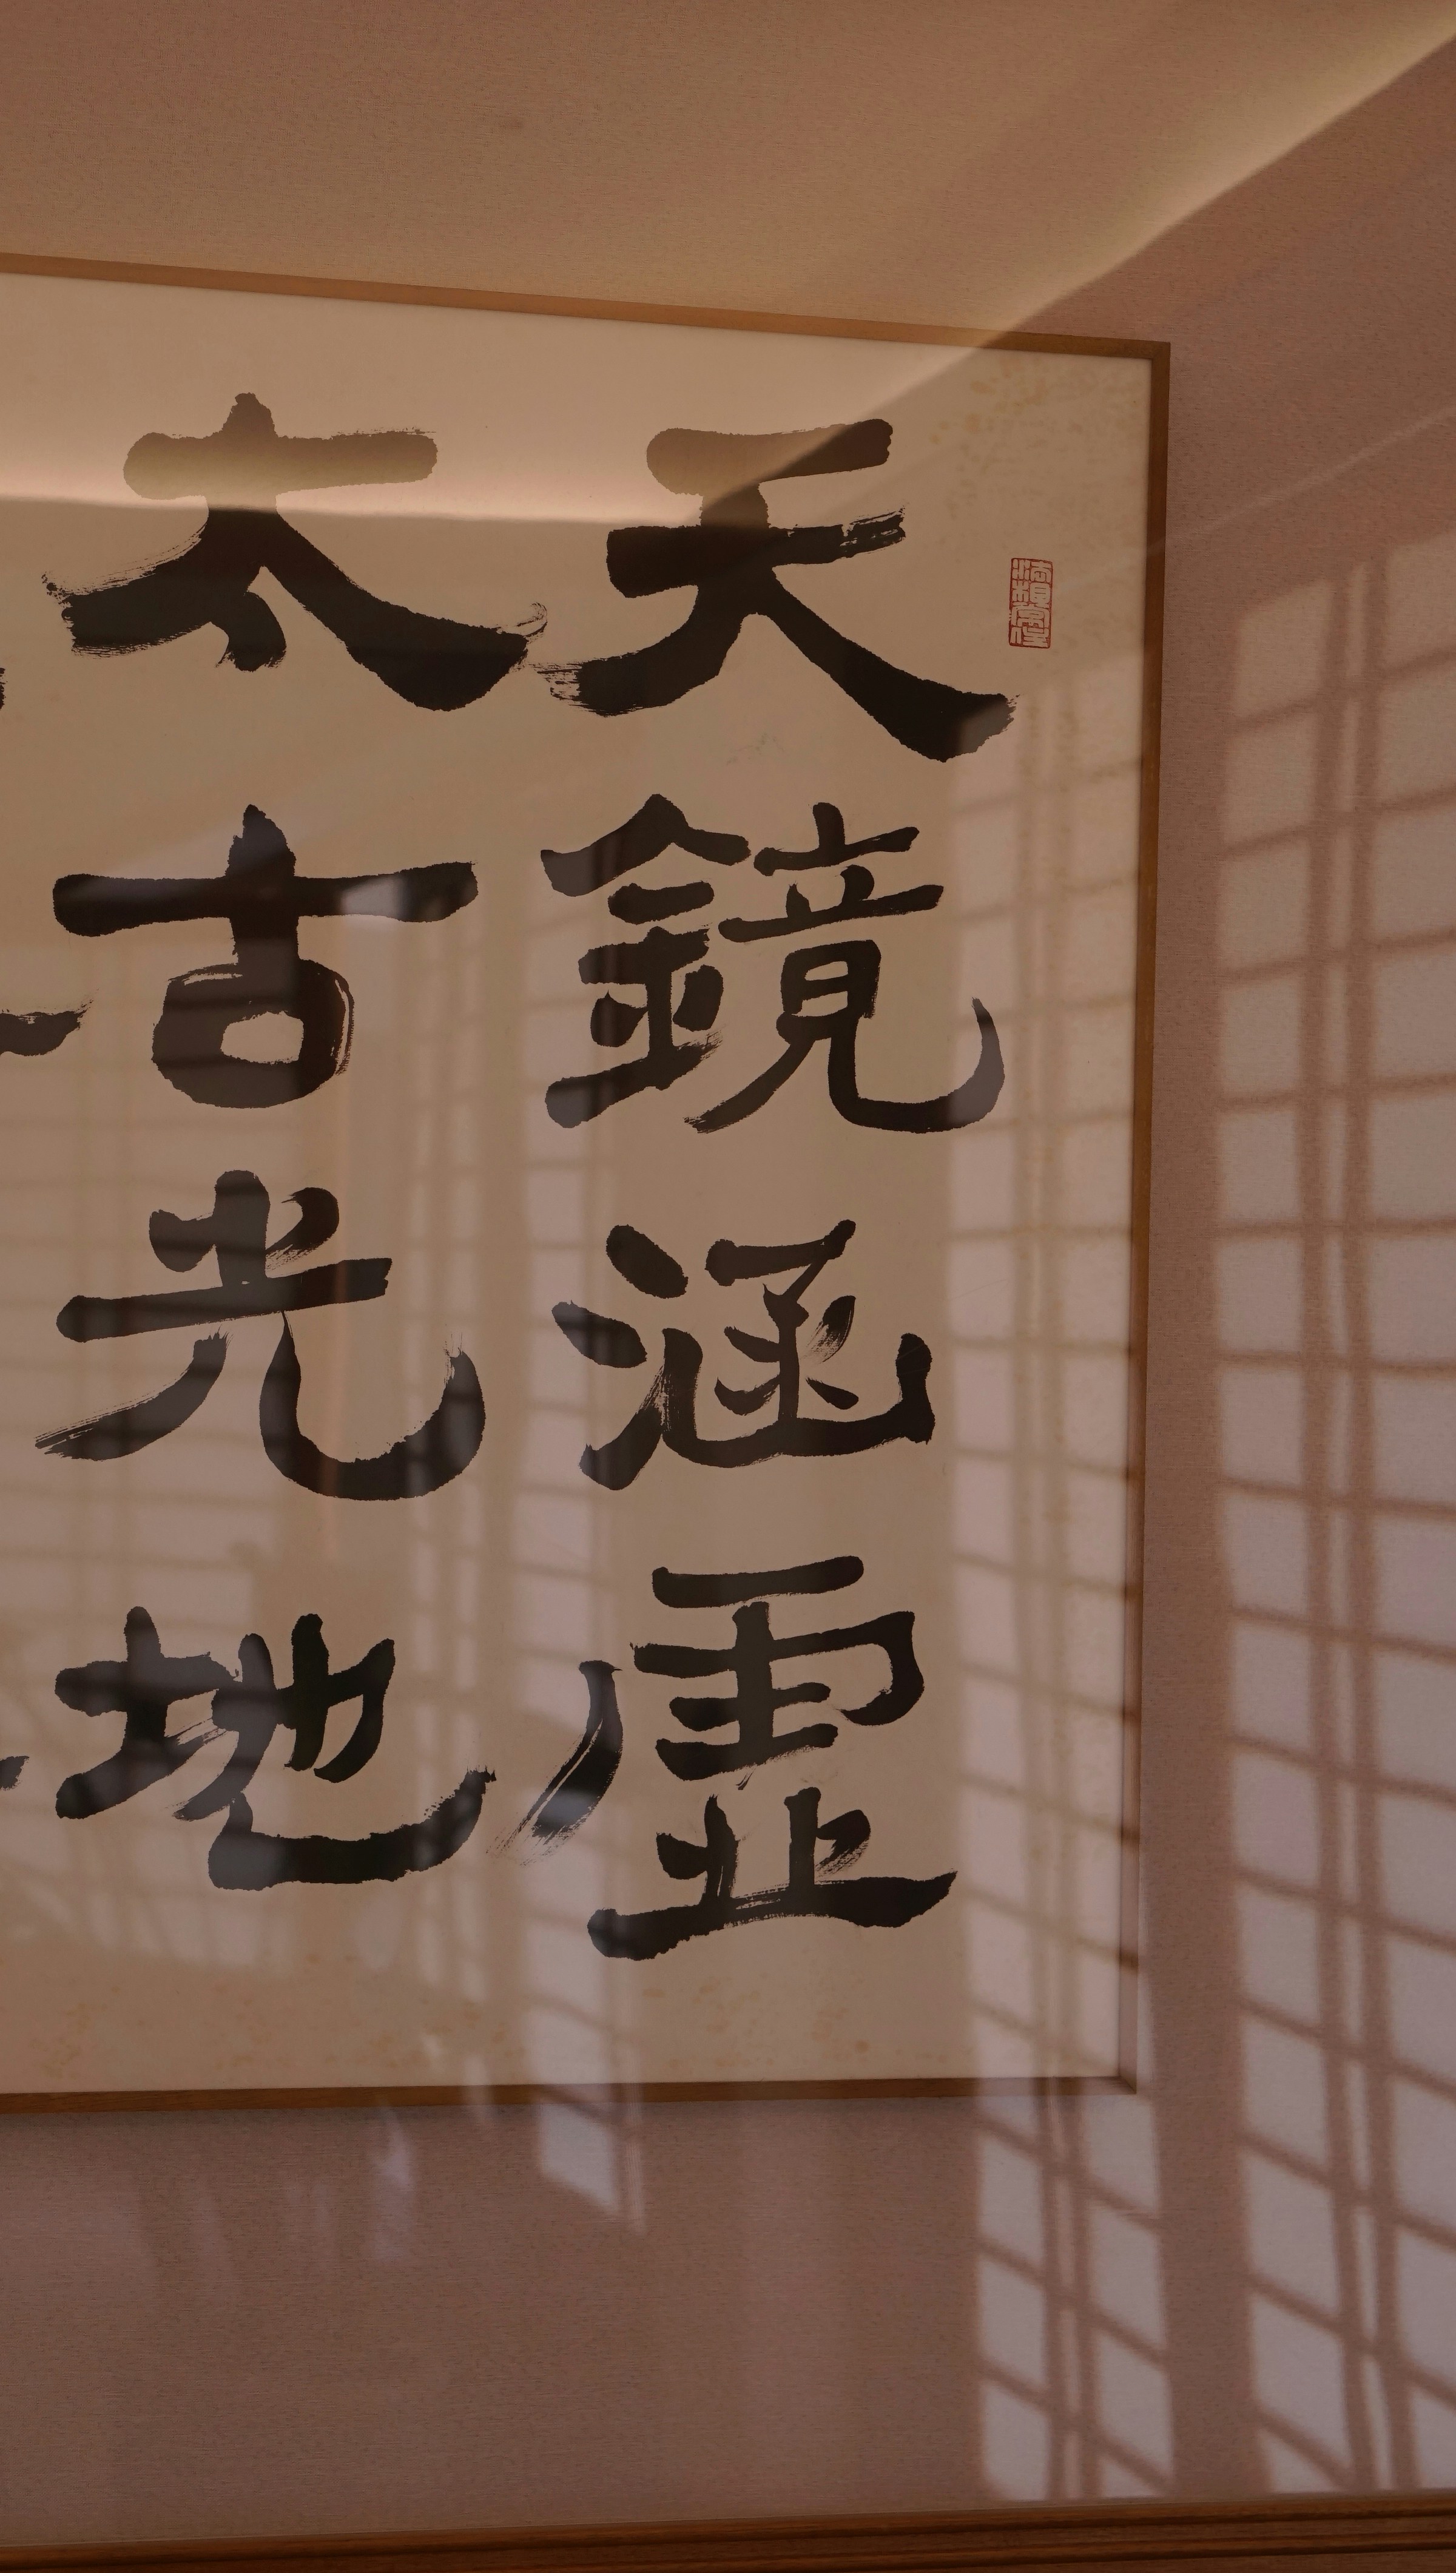 天鏡涵虛
太古光地